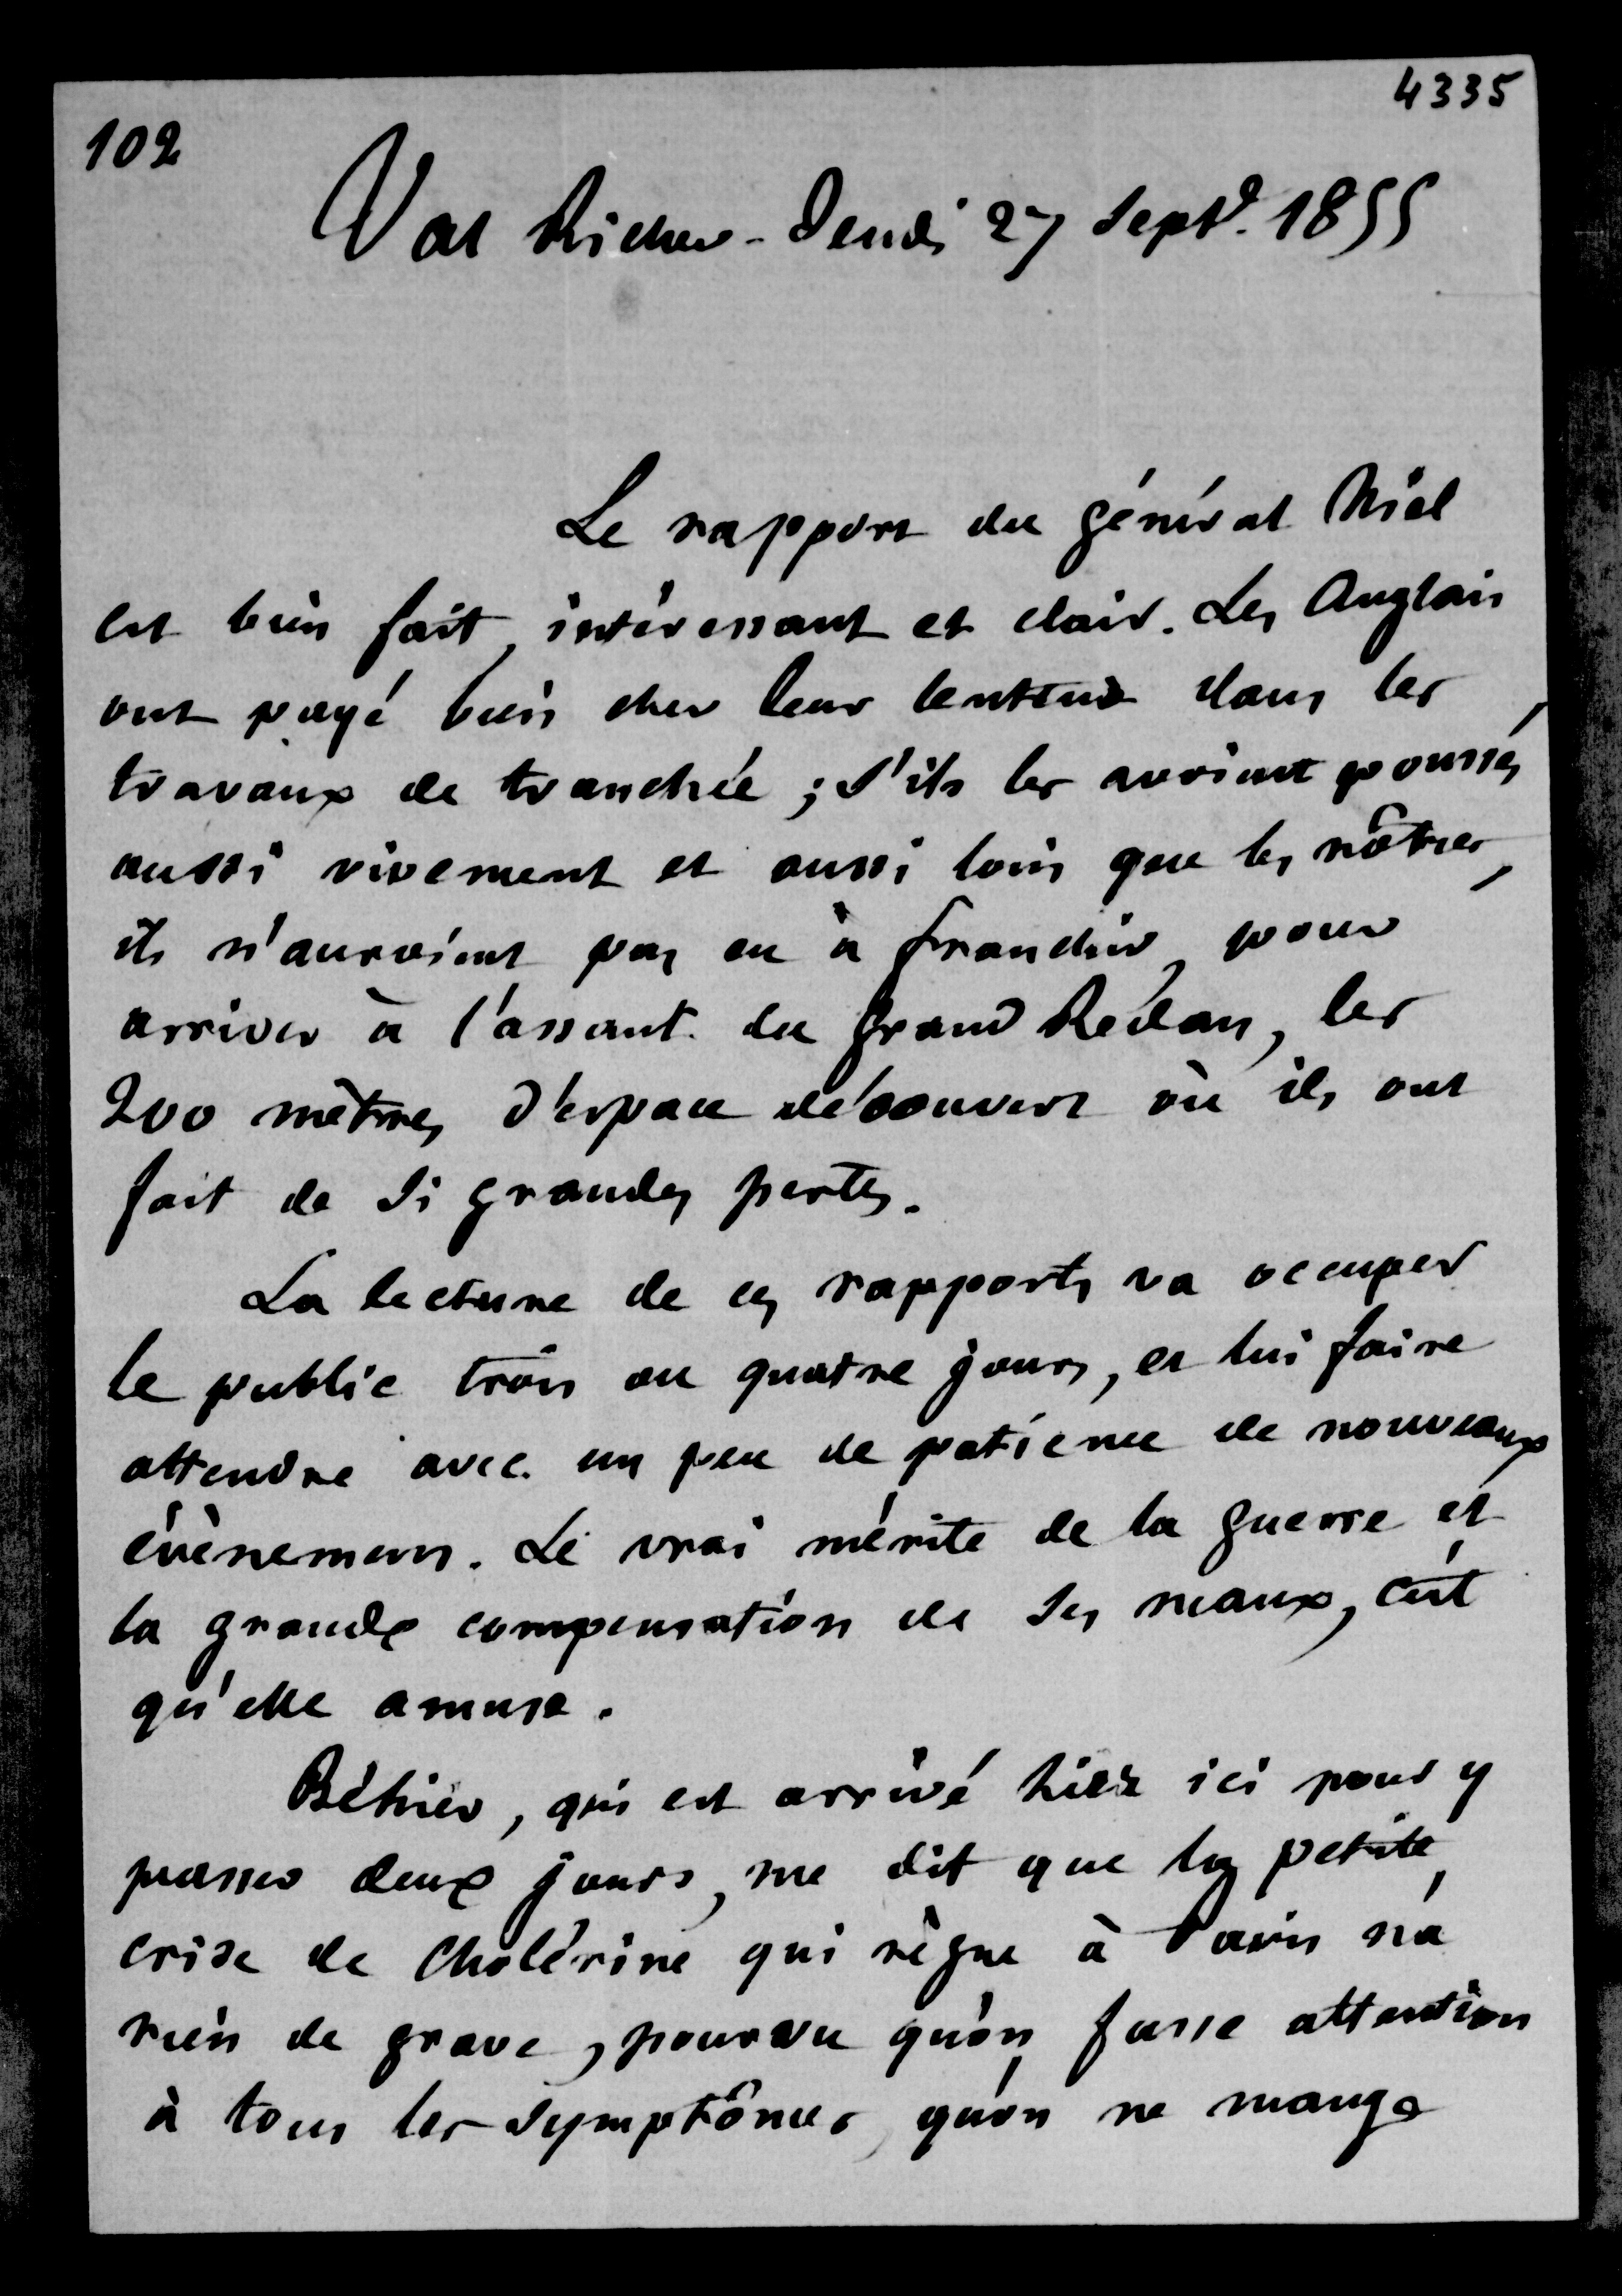 4335
102
Val Richer - Jeudi 27 Septe. 1855
Le rapport du général Niel
est bien fait, intéressant et clair. Les Anglais
ont payé bien cher leur lenteur dans les
travaux de tranchée ; s'ils les avoient poussés
aussi vivement et aussi loin que les nôtres,
ils n'auroient pas eu à franchir, pour
arriver à l'assaut du grand Rédan, les
200 mètres d'espace découvert où ils ont
fait de si grandes pertes.
La lecture de ces rapports va occuper
le public trois ou quatre jours, et lui faire
attendre avec un peu de patience de nouveaux
évènemens. Le vrai mérite de la guerre et
la grande compensation de ses maux, c'est
qu'elle amuse.
Béhier, qui est arrivé hier ici pour y
passer deux jours, me dit que la petite
crise de Cholérine qui règne à Paris n'a
rien de grave, pourvu qu'on fasse attention
à tous les symptômes, qu'on ne mange